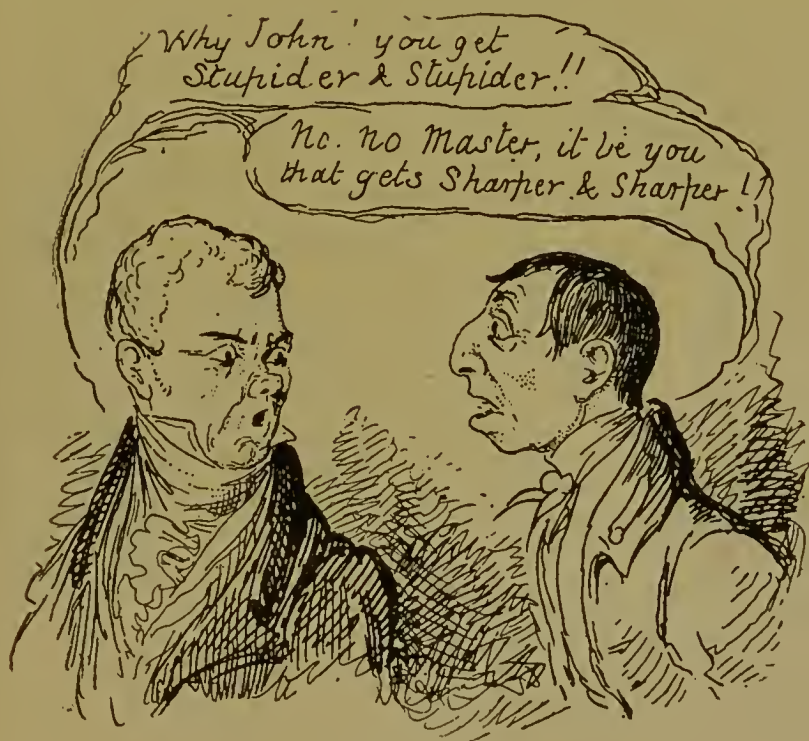 Why John! you get
Stupider & Stupider!!
No. no Master, it be you
that gets Sharper & Sharper!